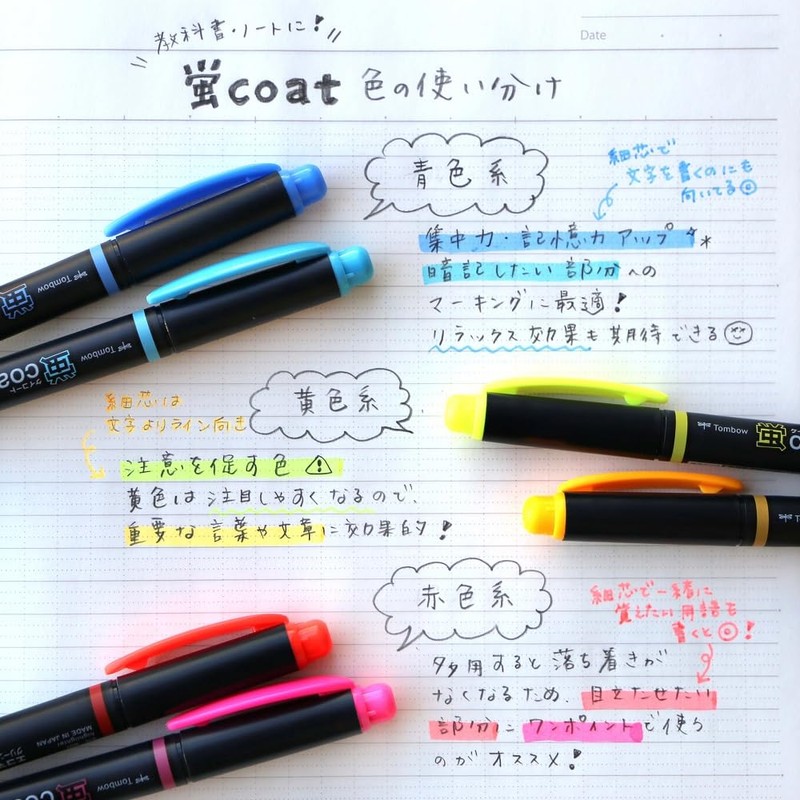 教科書・ノートに!
Date
蛍coat 色の使い分け
青色系
細芯で
文字を書くのにも
向いてる◎
集中力・記憶力アップ
暗記したい部分への
マーキングに最適!
リラックス効果も期待できる
Tombow
Tombow
蛍coa
ケイコート
細芯は
文字よりライン向き
黄色系
注意を促す色⚠
黄色は注目しやすくなるので、
重要な言葉や文章に効果的!
Tombow
蛍
赤色系
細芯で一緒に
覚えたい用語も
書くと◎!
多用すると落ち着きが
なくなるため、目立たせたい
部分にワンポイントで使う
のがオススメ!
MADE IN JAPAN
Tombow
蛍